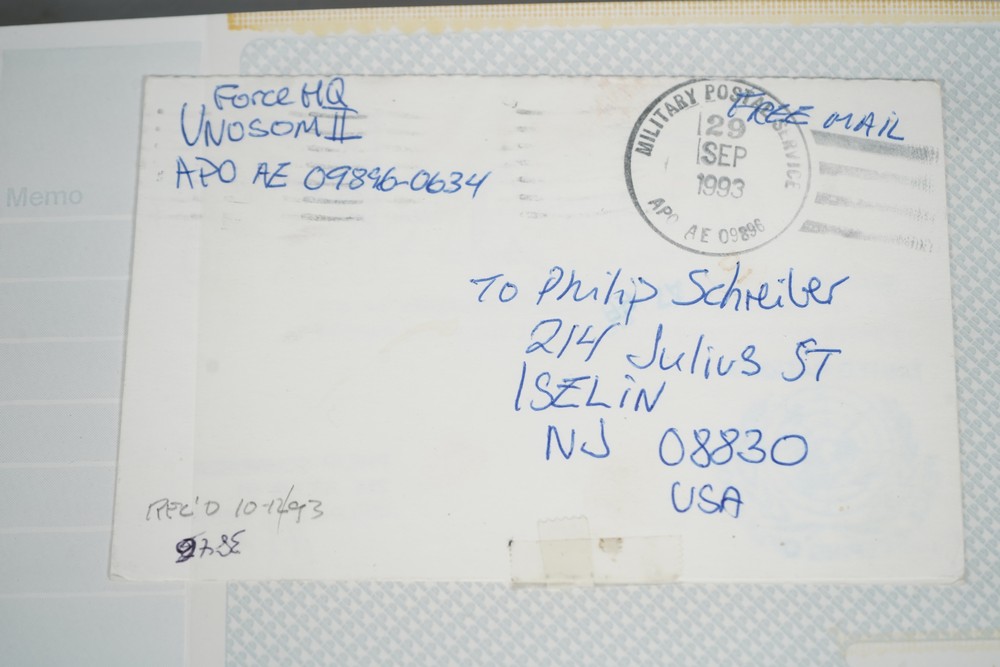 Memo
Force HQ
UNOSOM II
APO AE 09896-0634
MILITARY POSTAL SERVICE
29
SEP
1993
APO AE 09896
FREE MAIL
To Philip Schreiber
214 Julius ST
ISELIN
NJ 08830
USA
REC'D 10-12/93